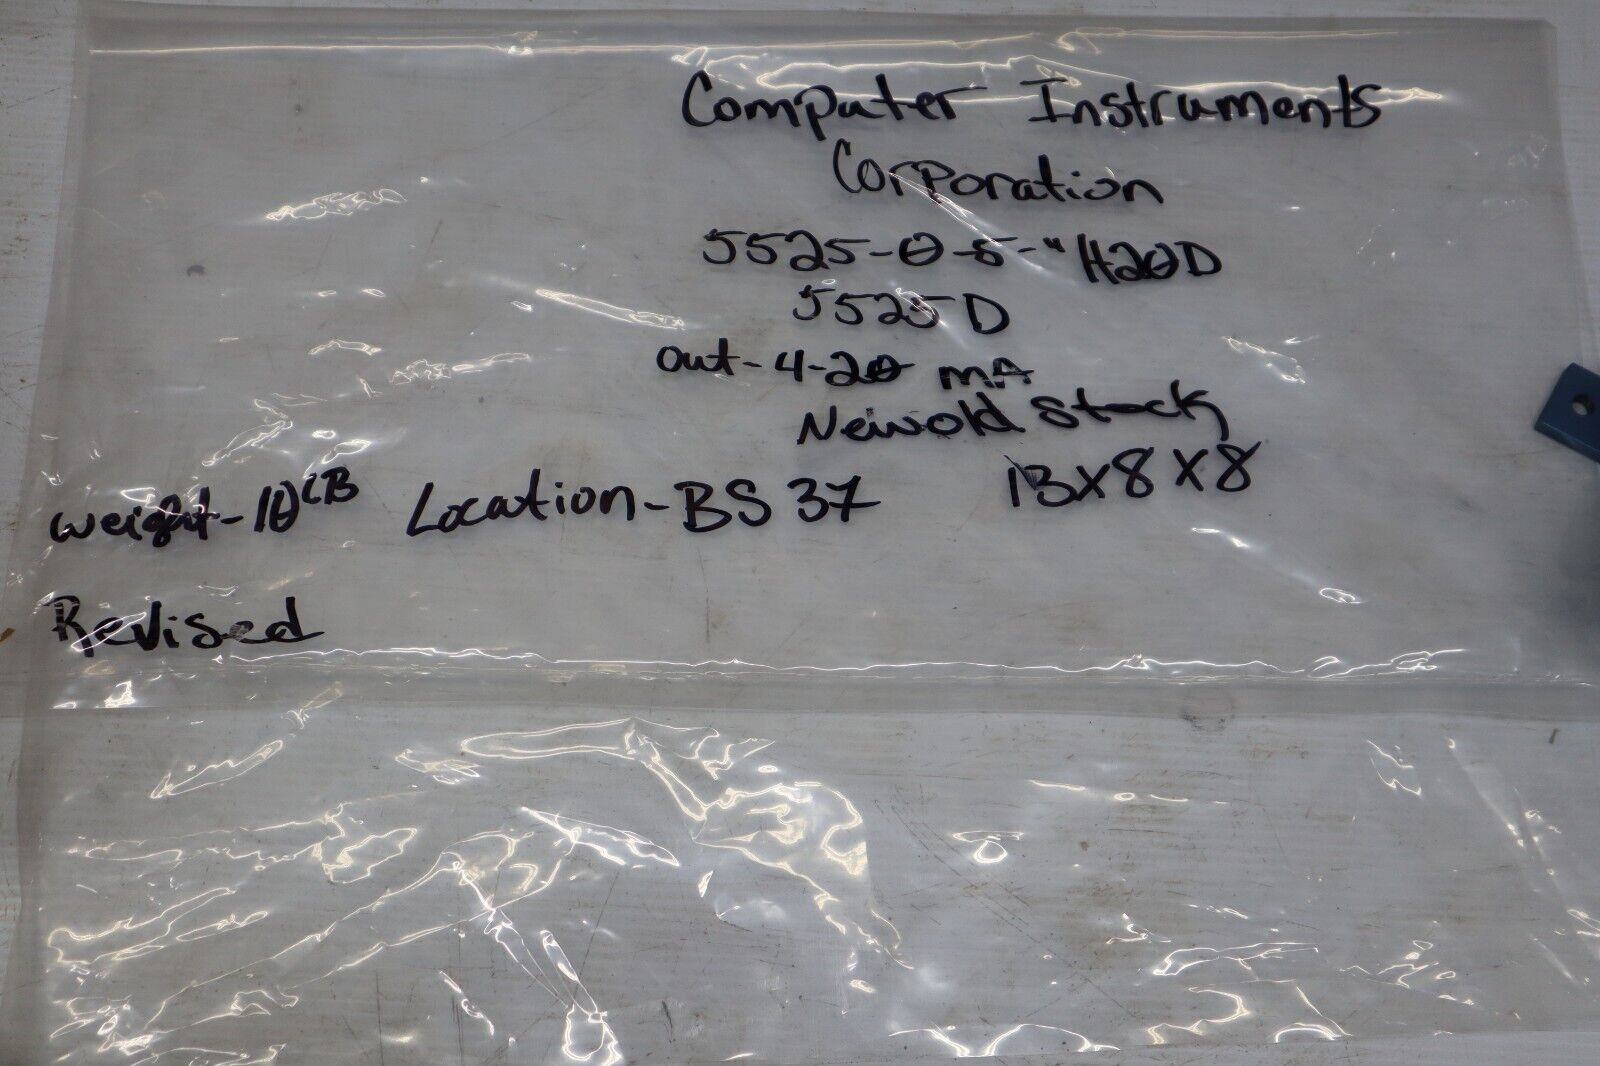 Computer Instruments
Corporation
5525-0-5-"H20D
5525D
out-4-20 mA
New old Stock
weight-10LB Location-BS37 13x8x8
Revised